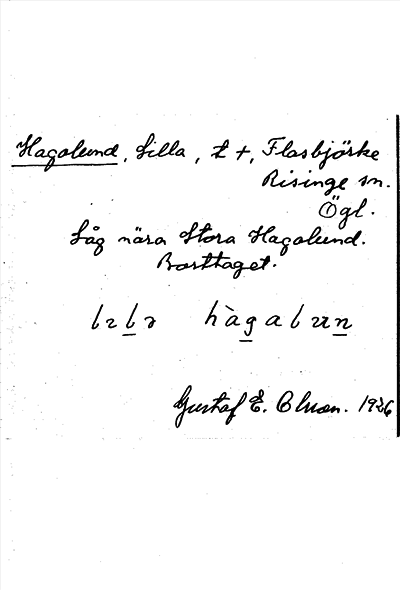 Hagalund, Lilla, t +, Flasbjörke
Risinge sn.
Ögl.
Låg nära Stora Hagalund.
Borttaget.
lılə hàgalun
Gustaf E. Olsson. 1926